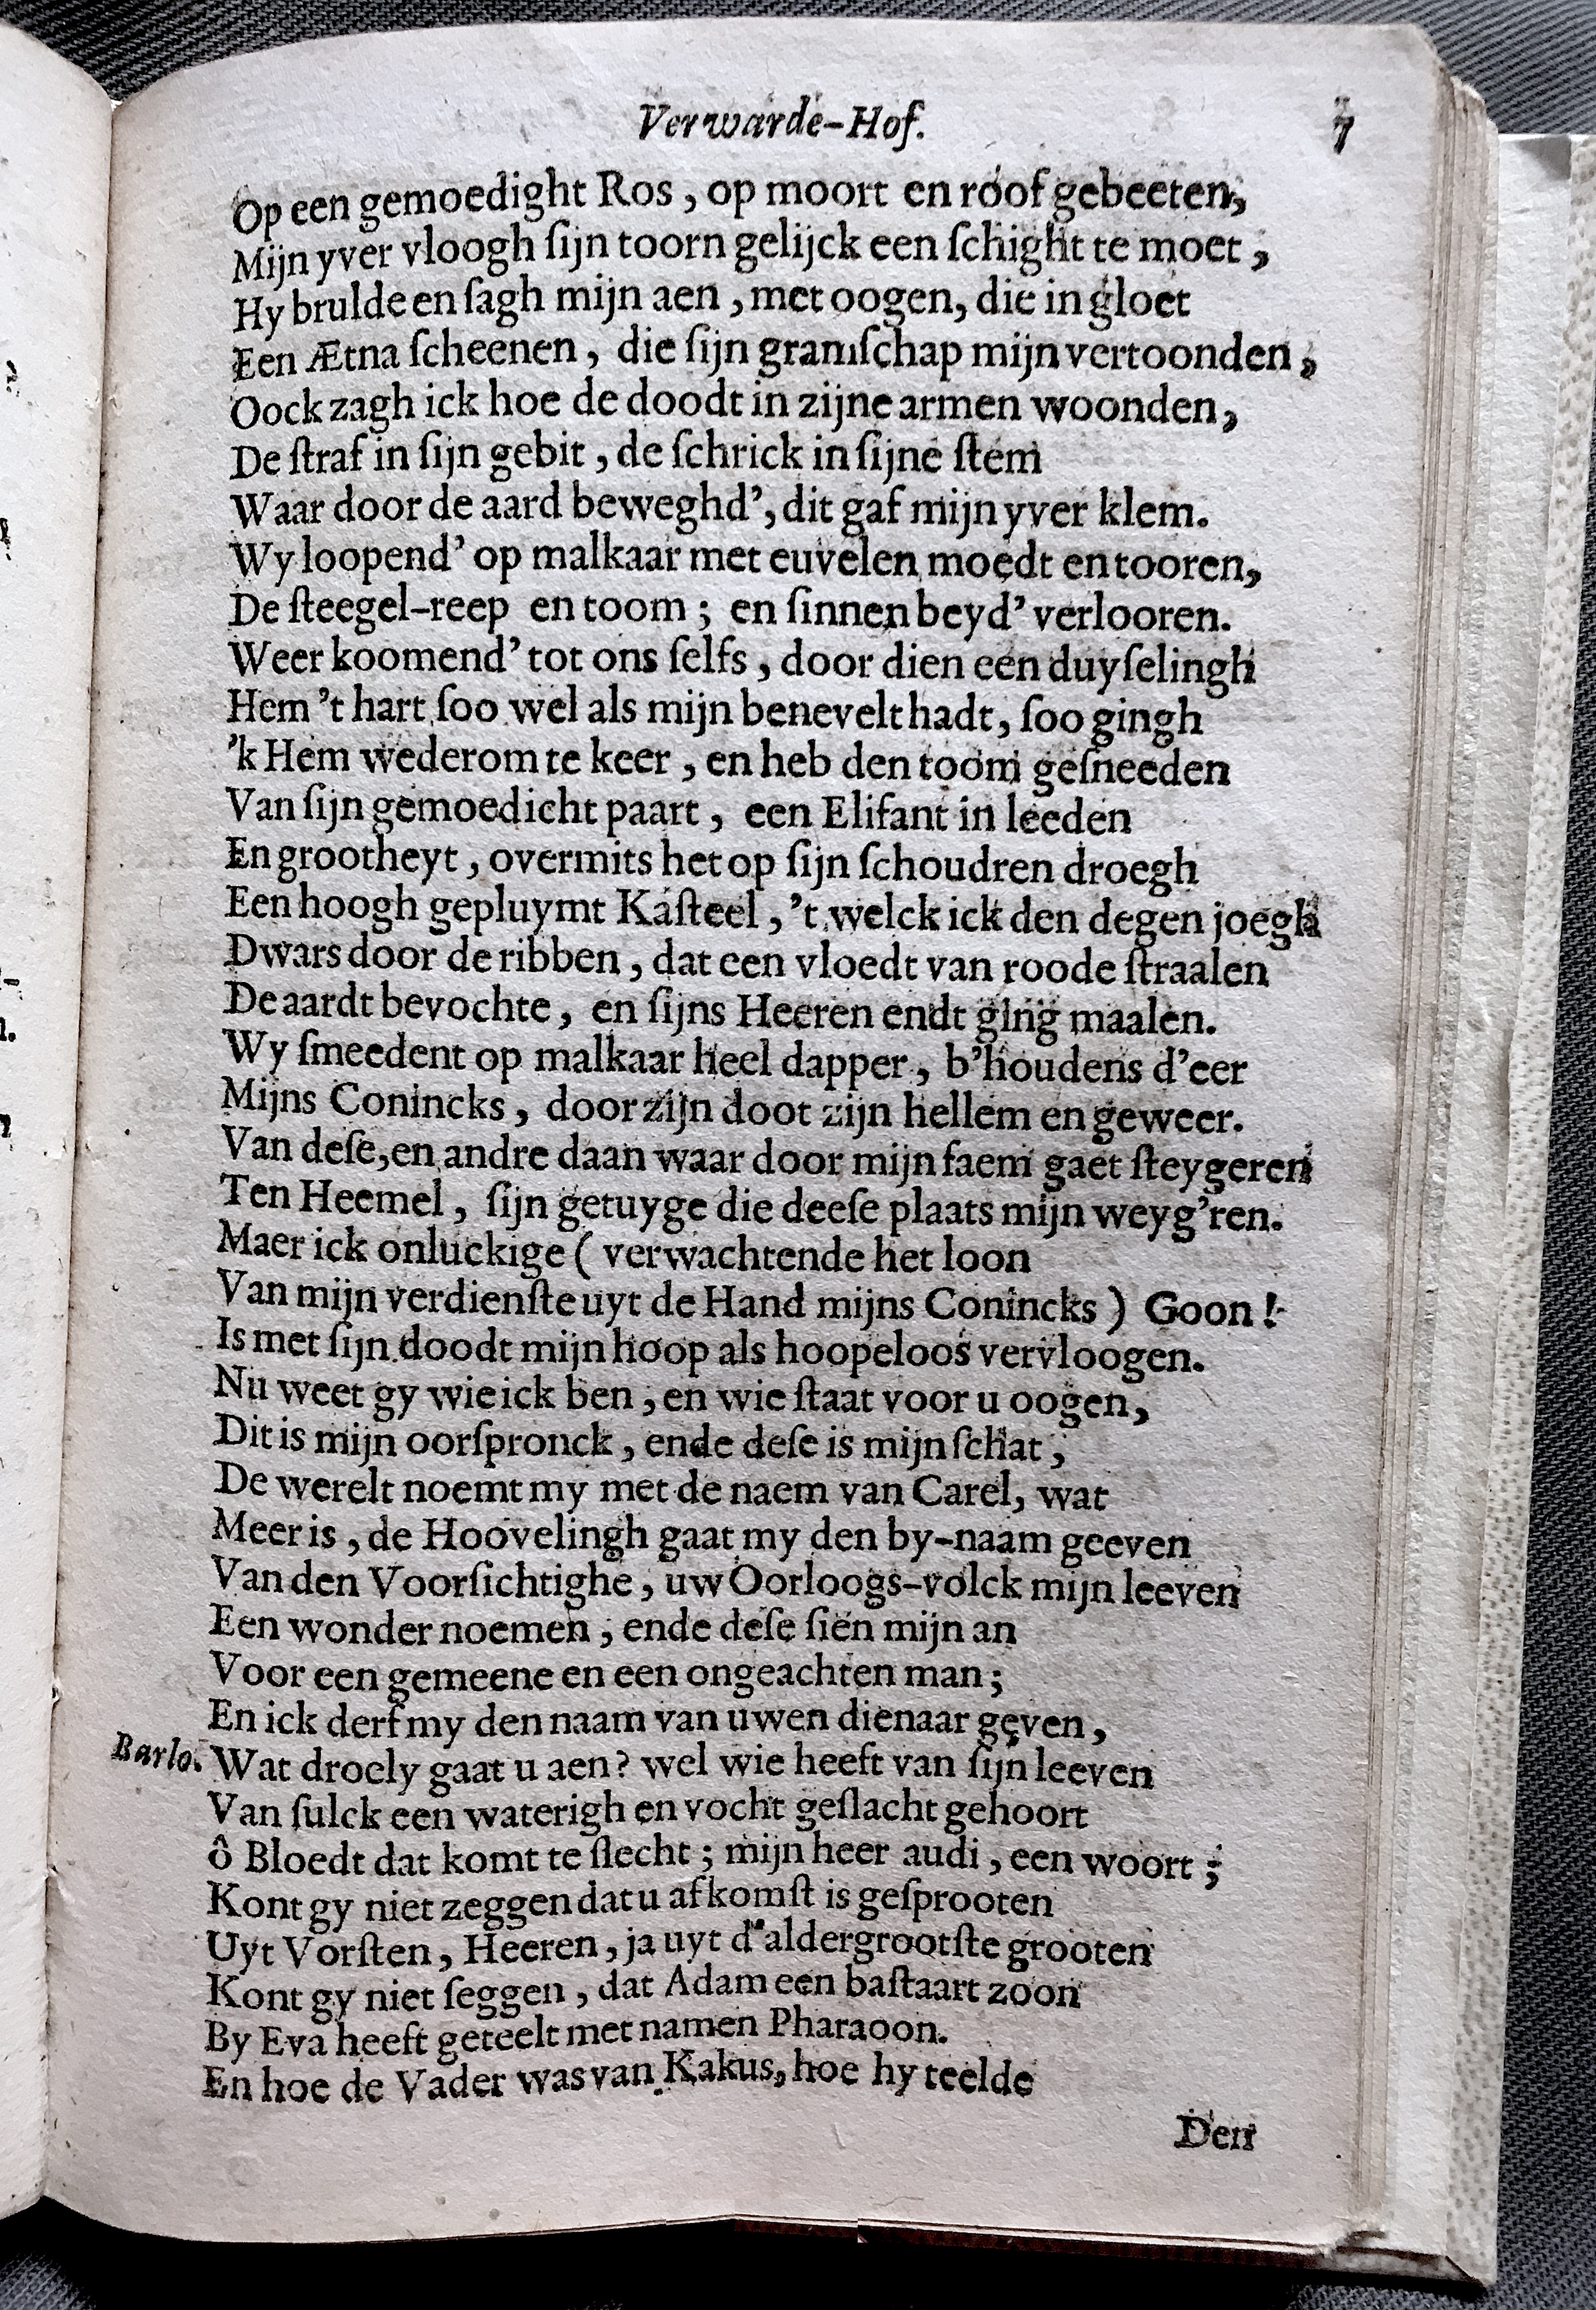 Verwarde-Hof. 7
Op een gemoedight Ros, op moort en roof gebeeten,
Mijn yver vloogh ſijn toorn gelijck een ſchight te moet,
Hy brulde en ſagh mijn aen, met oogen, die in gloet
Een Ætna ſcheenen, die ſijn gramſchap mijn vertoonden,
Oock zagh ick hoe de doodt in zijne armen woonden,
De ſtraf in ſijn gebit, de ſchrick in ſijne ſtem
Waar door de aard beweghd', dit gaf mijn yver klem.
Wy loopend' op malkaar met euvelen moedt en tooren,
De ſteegel-reep en toom; en ſinnen beyd' verlooren.
Weer koomend' tot ons ſelfs, door dien een duyſelingh
Hem 't hart ſoo wel als mijn benevelt hadt, ſoo gingh
'k Hem wederom te keer, en heb den toom geſneeden
Van ſijn gemoedicht paart, een Elifant in leeden
En grootheyt, overmits het op ſijn ſchoudren droegh
Een hoogh gepluymt Kaſteel, 't welck ick den degen joegh
Dwars door de ribben, dat een vloedt van roode ſtraalen
De aardt bevochte, en ſijns Heeren endt ging maalen.
Wy ſmeedent op malkaar heel dapper, b'houdens d'eer
Mijns Conincks, door zijn doot zijn hellem en geweer.
Van deſe, en andre daan waar door mijn faem gaet ſteygeren
Ten Heemel, ſijn getuyge die deeſe plaats mijn weyg'ren.
Maer ick onluckige (verwachtende het loon
Van mijn verdienſte uyt de Hand mijns Conincks) Goon!
Is met ſijn doodt mijn hoop als hoopeloos vervloogen.
Nu weet gy wie ick ben, en wie ſtaat voor u oogen,
Dit is mijn oorſpronck, ende deſe is mijn ſchat,
De werelt noemt my met de naem van Carel, wat
Meer is, de Hoovelingh gaat my den by-naam geeven
Van den Voorſichtighe, uw Oorloogs-volck mijn leeven
Een wonder noemen, ende deſe ſien mijn an
Voor een gemeene en een ongeachten man;
En ick derf my den naam van uwen dienaar geven,
Barlo. Wat droely gaat u aen? wel wie heeft van ſijn leeven
Van ſulck een waterigh en vocht geſlacht gehoort
ô Bloedt dat komt te ſlecht; mijn heer audi, een woort;
Kont gy niet zeggen dat u afkomſt is geſprooten
Uyt Vorſten, Heeren, ja uyt d'aldergrootſte grooten
Kont gy niet ſeggen, dat Adam een baſtaart zoon
By Eva heeft geteelt met namen Pharaoon.
En hoe de Vader was van Kakus, hoe hy teelde
Den